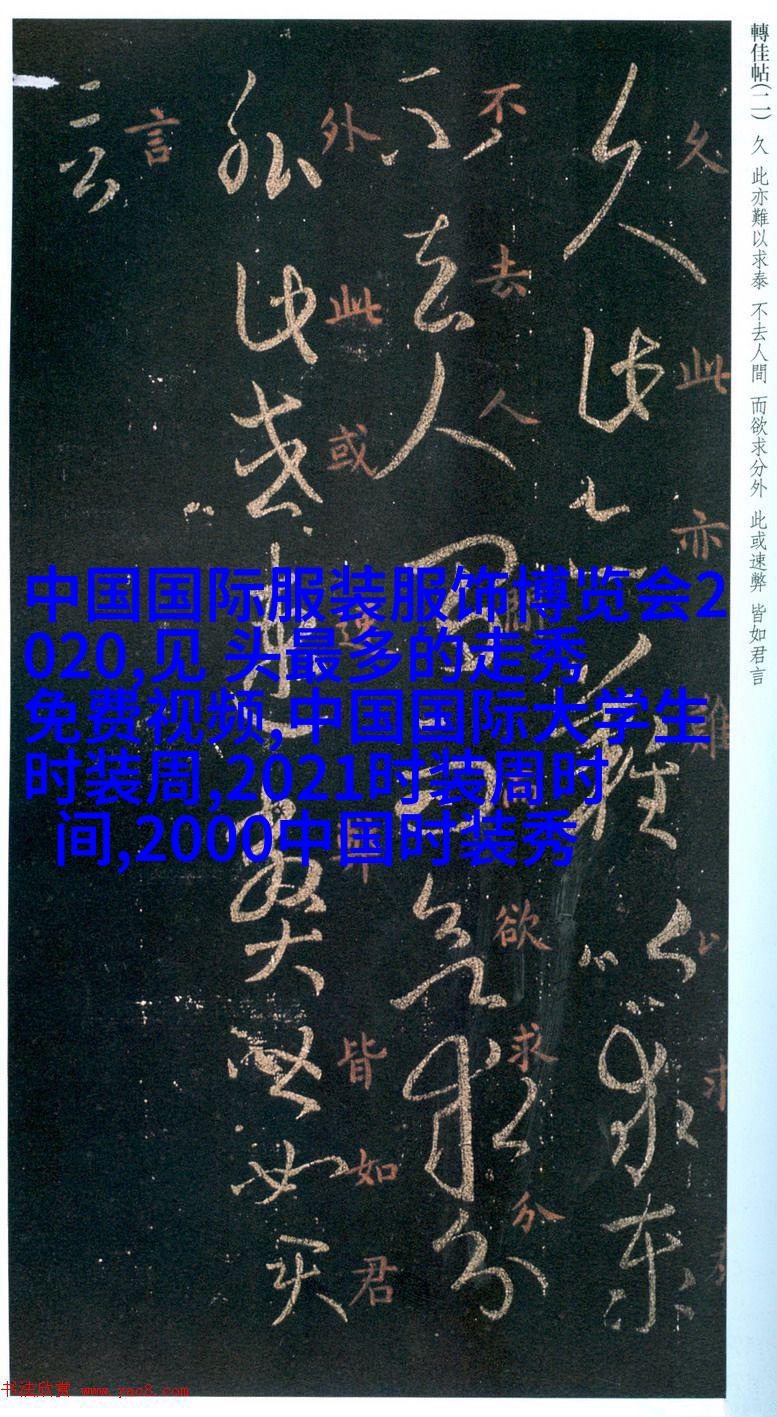 轉佳帖(二) 久 此亦難以求泰 不去人間 而欲求分外 此或速弊 皆如君言
久此亦難以求泰
久此亦難以求泰
不去人間而欲求分
不去人間而欲求分
外此或速弊皆如君
外此或速弊皆如君
言
言
中国国际服装服饰博览会2
020,见 头最多的走秀
免费视频,中国国际大学生
时装周,2021时装周时
间,2000中国时装秀
书法欣赏 www.yac8.com